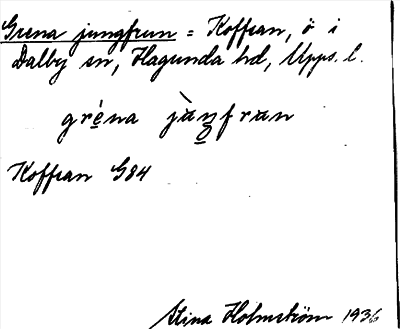 Grena jungfrun = Koffsan, ö i
Dalby sn, Hagunda hd, Upps. l.
grè̱na jàŋ̱fru̱n
Koffsan G84
Stina Holmström 1936